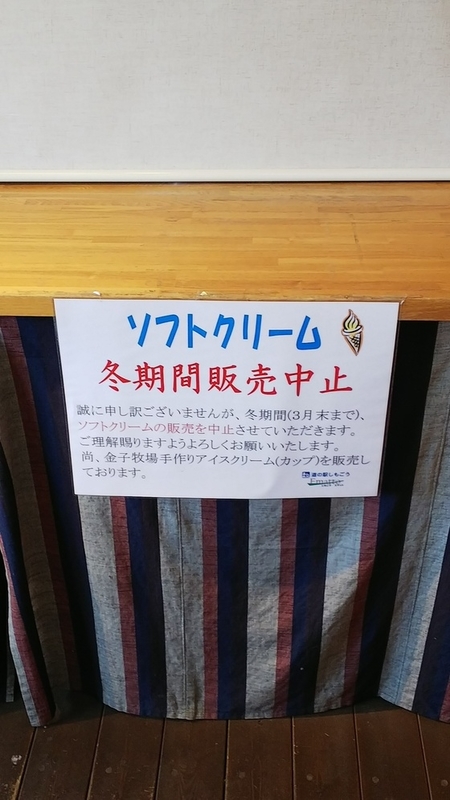 ソフトクリーム
冬期間販売中止
誠に申し訳ございませんが、冬期間(3月末まで)、
ソフトクリームの販売を中止させていただきます。
ご理解賜りますようよろしくお願いいたします。
尚、金子牧場手作りアイスクリーム(カップ)を販売し
ております。
道の駅しもごう